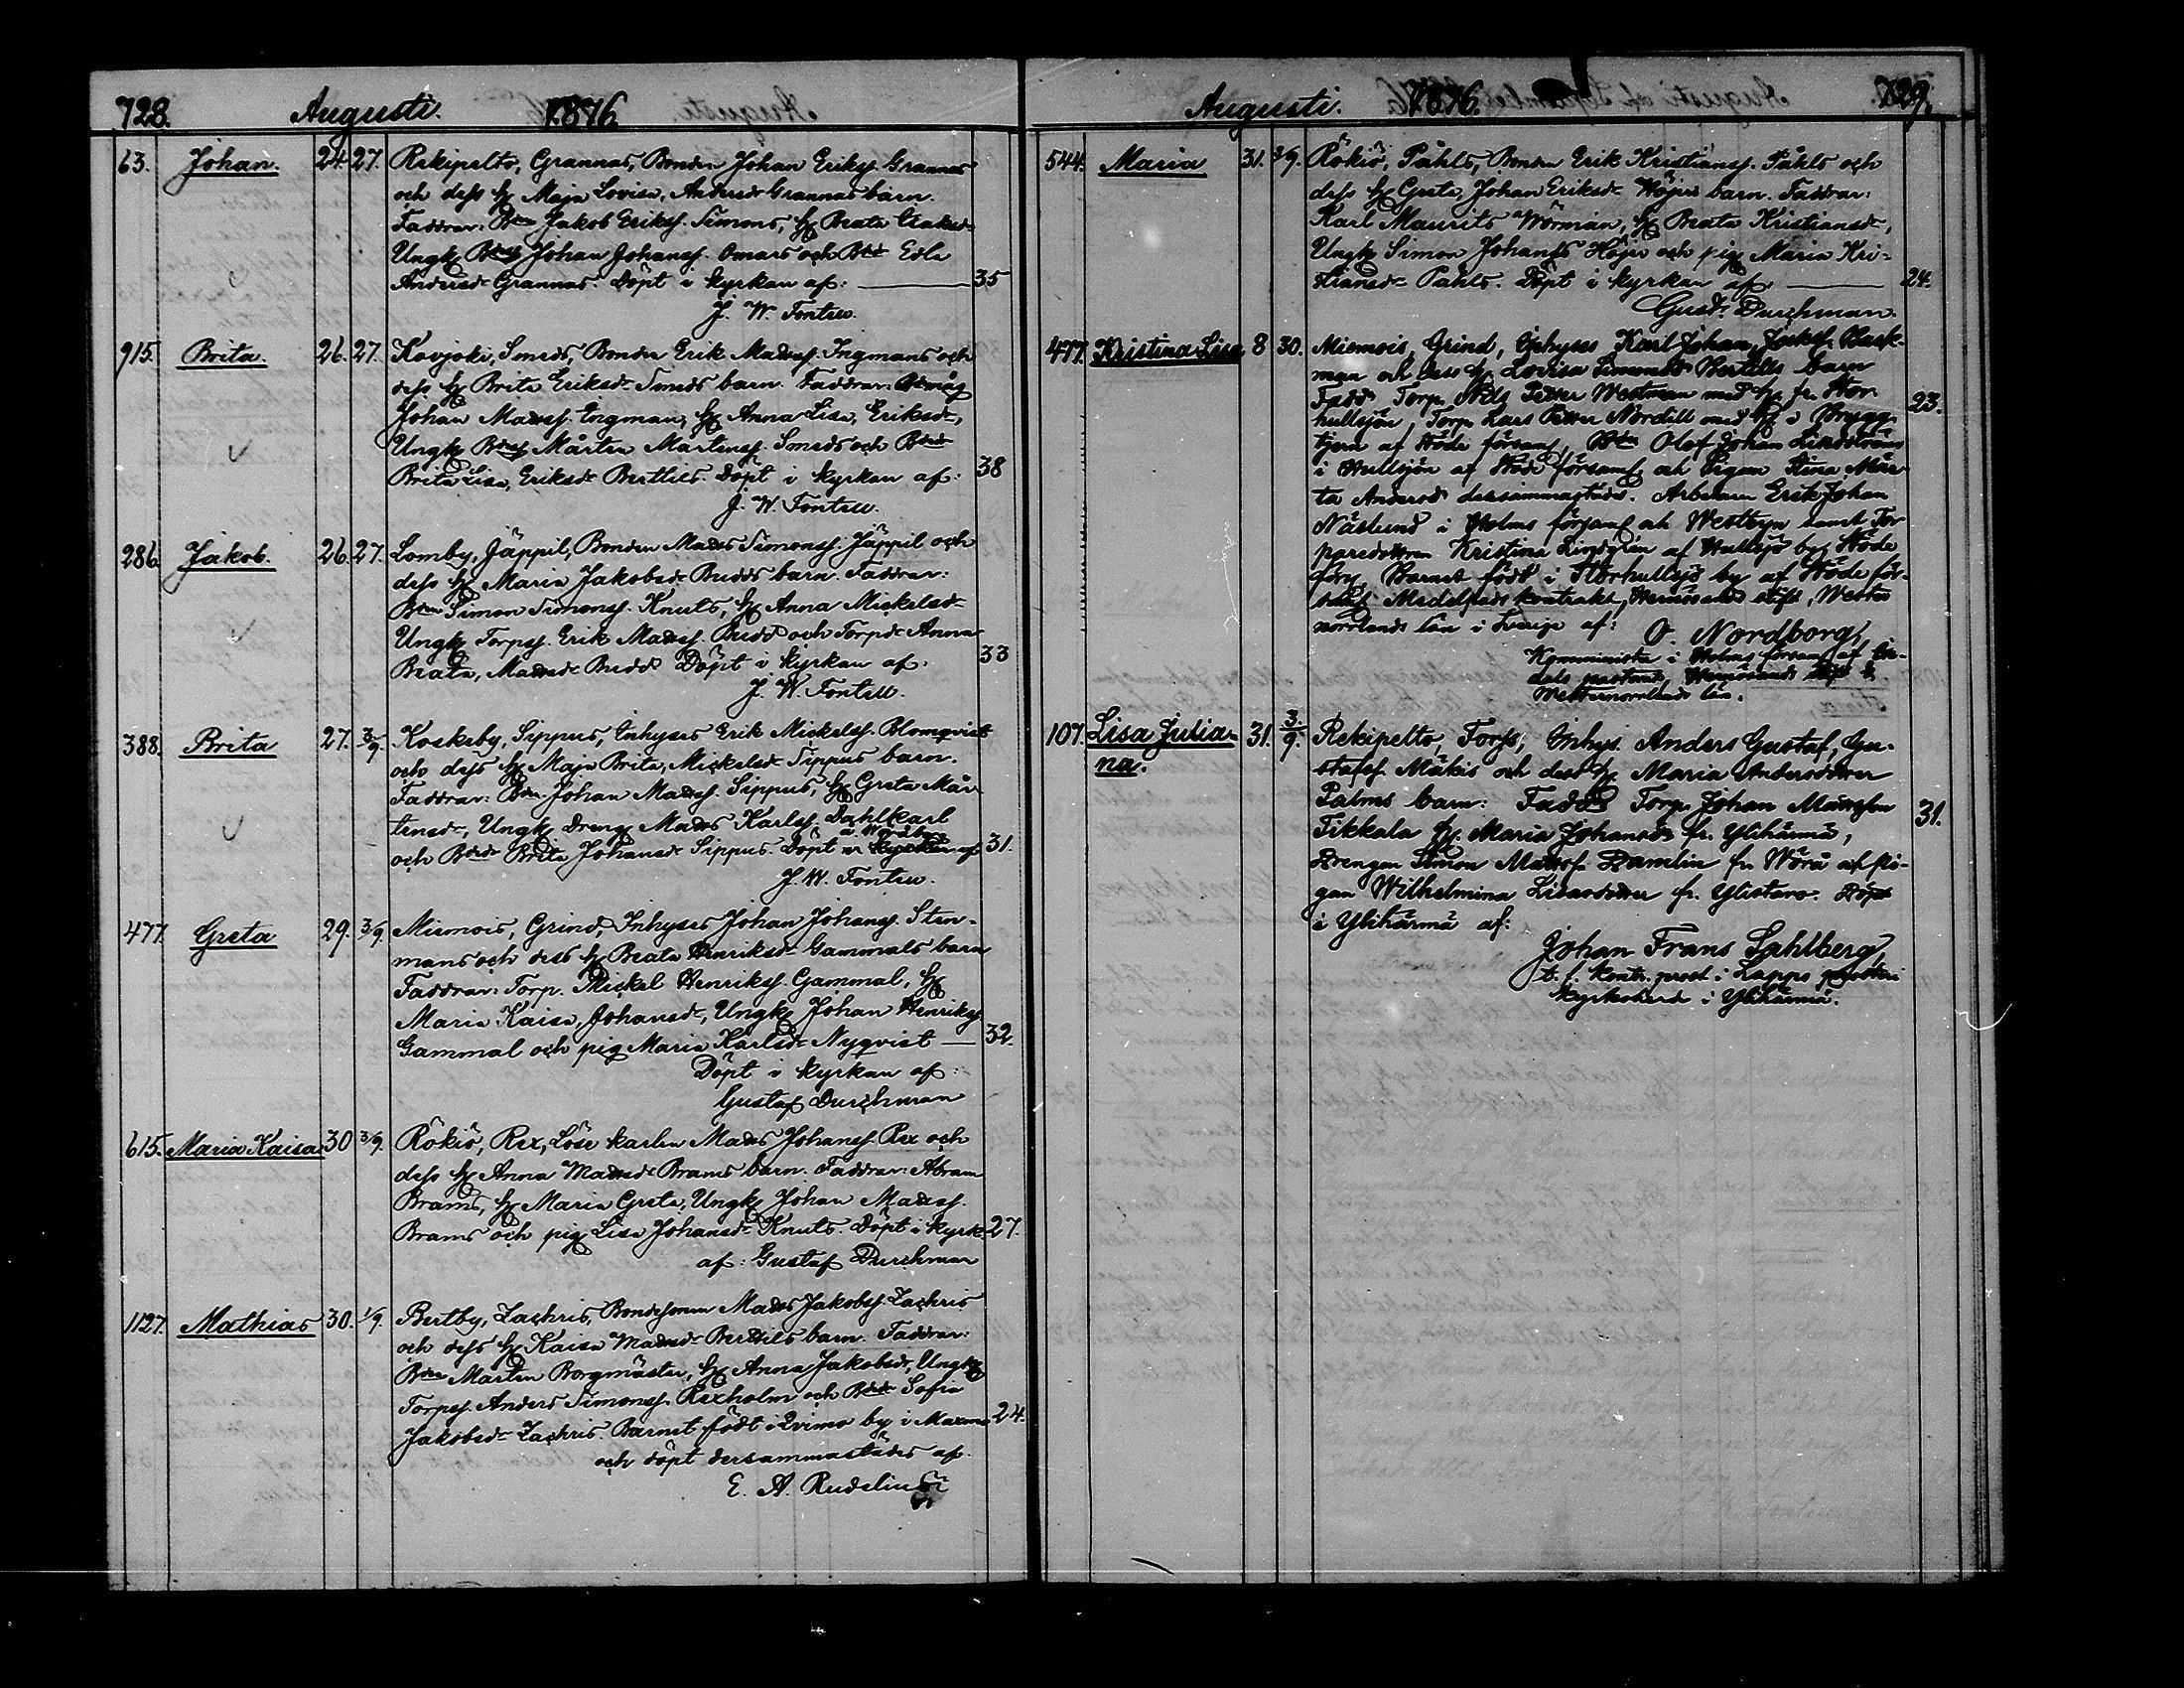 728. Augusti. 1876.
63. Johan. 24. 27. Rekipelto, Grannas, Bonden Johan Erikss. Grannas
och dess h. Maja Lovisa, Andersdr Grannas barn.
Faddrar: Bden Jakob Erikss. Simons, h. Beata Isaksdr
Ungk. Bdes Johan Johanss. Omars och Bdr Edla
Andersdr Grannas. Döpt i kyrkan af: 35
J. W. Fontell.
915. Brita. 26. 27. Kovjoki, Smeds, Bonden Erik Madss. Ingmans och
dess h. Brita Eriksdr Smeds barn. Faddrar: Bdmåg
Johan Madss. Ingman, h. Anna Lisa, Eriksdr,
Ungk. Bdes Mårten Mårtenss. Smeds och Bdr
Brita Lisa, Eriksdr Bertils. Döpt i kyrkan af: 38
J. W. Fontell.
286. Jakob. 26. 27. Lomby, Jäppil, Bonden Mads Simonss. Jäppil och
dess h. Maria Jakobsdr Budds barn. Faddrar:
Bden Simon Simonss. Knuts, h. Anna Mickelsdr
Ungk. Torps. Erik Madss. Budd och Torpdr Anna
Beata, Madsdr Budd. Döpt i kyrkan af: 33
J. W. Fontell.
388. Brita 27. 3/9. Koskeby, Sippus, Inhyses Erik Mickelss. Blomqvist
och dess h. Maja Brita, Mickelsdr Sippus barn.
Faddrar: Bden Johan Madss. Sippus, h. Greta Mår-
tensdr, Ungk. Dreng Mads Karlss. Dahlkarl
och Bdr Brita Johansdr Sippus. Döpt i kyrkan af 31.
J. W. Fontell.
477. Greta 29. 3/9. Miemois, Grind, Inhyses Johan Johanss. Sten-
mans och dess h. Beata Henriksdr Gammals barn
Faddrar: Torp. Mickel Henrikss. Gammal, h.
Maria Kaisa, Johansdr, Ungk. Johan Henrikss
Gammal och pig. Maria Karlsdr Nyqvist 32.
Döpt i kyrkan af:
Gustaf Durchman
615. Maria Kaisa 30 3/9. Rökiö, Rex, Löse karlen Mads Johanss. Rex och
dess h. Anna Madsdr Brams barn. Faddrar: Abram
Brams, h. Maria Greta, Ungk. Johan Madss.
Brams och pig. Lisa Johansdr Knuts. Döpt i kyrk. 27.
af: Gustaf Durchman
1127. Mathias 30. 1/9. Bertby, Zachris, Bondesonen Mads Jakobss. Zachris
och dess h. Kaisa Madsdr Bertils barn. Faddrar:
Bden Mårten Borgmäster, h. Anna Jakobsdr, Ungk.
Torpss. Anders Simonss. Rexholm och Bdr Sofia
Jakobsdr Zachris. Barnet födt i Qvimo by i Maxmo 24.
och döpt dersammastädes af.
E. A. Rudelius
Augusti. 1876. 729.
544. Maria 31. 3/9. Rökiö, Påhls, Bonden Erik Kristianss. Påhls och
dess h. Greta, Johan Eriksdr Höjers barn. Faddrar:
Karl Maurits Wörman, h. Beata Kristiansdr,
Ungk. Simon Johanss Höjer och pig. Maria Kri-
stiansdr Påhls. Döpt i kyrkan af 24.
Gust. Durchman.
477. Kristina Lisa 8 30. Miemois, Grind, Inhyses Karl Johan, Back-
man och dess h. Lovisa Simonsdr Bertils barn
Fadd. Torp. Nils Petter Westman med h. fr. Stor
hullsjön, Torp. Lars Petter Nordell med h. i Brygg- 23.
tjern af Stöde församl., Bden Olof Johan Lindström
i Hullsjön af Stöde församl. och Pigan Stina Mär-
ta Andersdr dersammastädes. Arbetaren Erik Johan
Näslund i Holms församl. och Westbyn samt Tor-
paredottren Kristina Lindgren af Hullsjö by, Stöde
förs. Barnet födt i Storhullsjö by af Stöde för-
saml. Medelpads kontrakt, Hernösands stift, Wester
norrlands län i Sverige af:
O. Nordborg,
Komminister i Holms församl. af
dals pastorat, Hernösands stift &
Westernorrlands län.
107. Lisa Julia- 31. 3/9. Rekipelto, Torss, Inhys. Anders Gustaf, Gu-
na. stafss. Mäkis och dess h. Maria Andersdotter
Palms barn: Faddr. Torp. Johan Mattsson 31.
Tikkala h. Maria Johansdr fr. Ylihärmä,
Drengen Simon Mattss. Damlin fr. Wörå och pi-
gan Wilhelmina Lisasdotter fr. Ylistaro. Döpt
i Ylihärmä af:
Johan Frans Sahlberg,
t. f. kontr. prost i Lappo prosteri
kyrkoherde i Ylihärmä.